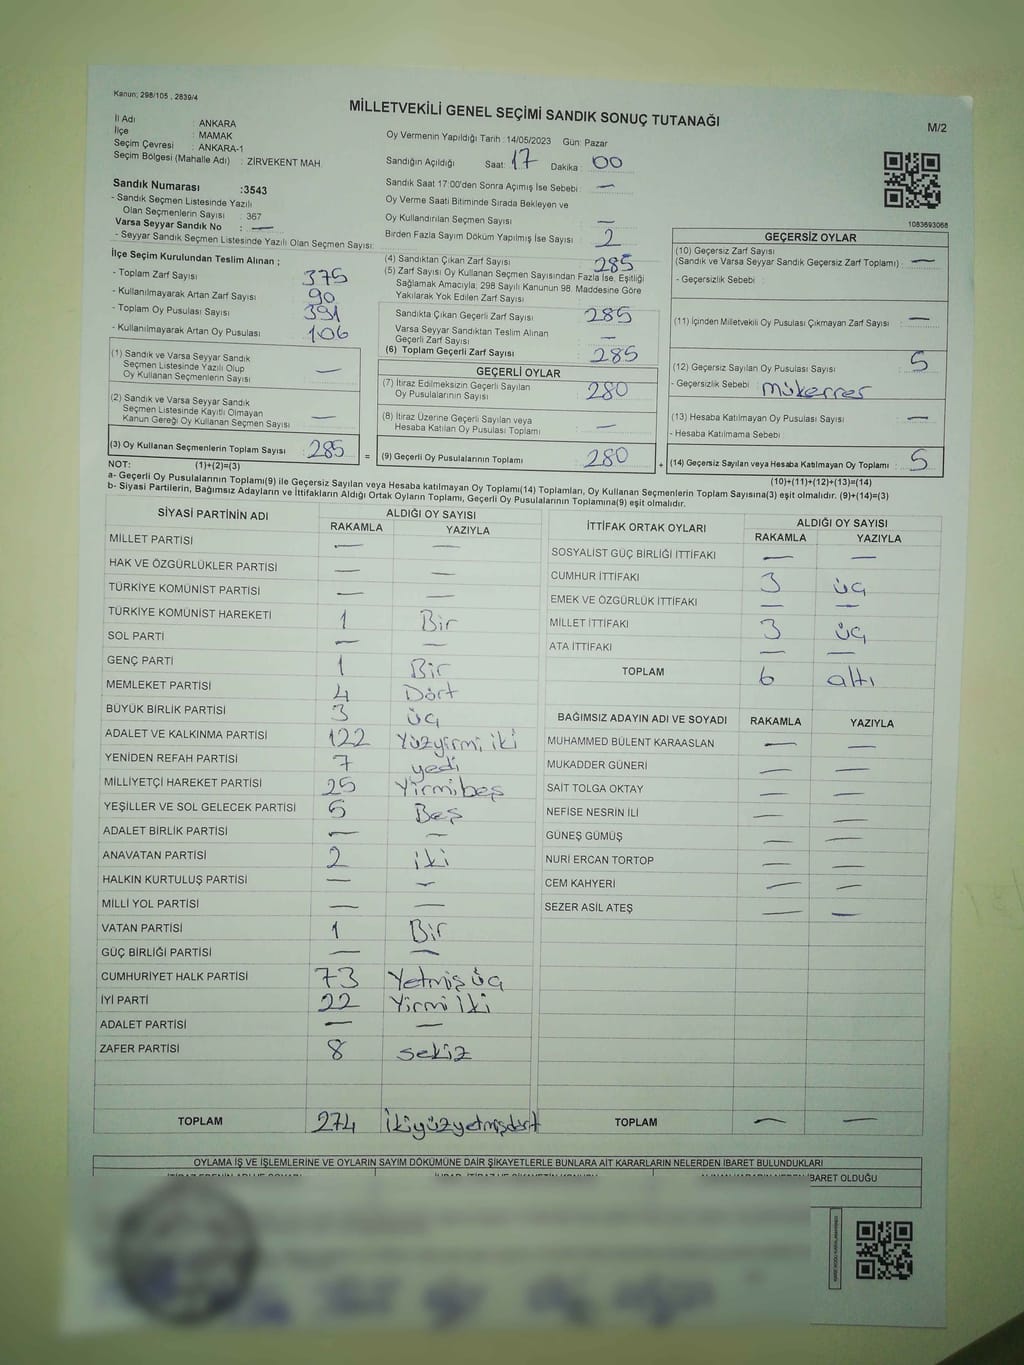 Kanun; 298/105 , 2839/4
MİLLETVEKİLİ GENEL SEÇİMİ SANDIK SONUÇ TUTANAĞI
M/2
İl Adı : ANKARA
İlçe : MAMAK
Seçim Çevresi : ANKARA-1
Seçim Bölgesi (Mahalle Adı) : ZİRVEKENT MAH.
Oy Vermenin Yapıldığı Tarih : 14/05/2023 Gün: Pazar
Sandığın Açıldığı Saat: 17 Dakika : 00
Sandık Saat 17:00'den Sonra Açımış İse Sebebi : —
Oy Verme Saati Bitiminde Sırada Bekleyen ve
Oy Kullandırılan Seçmen Sayısı : —
Birden Fazla Sayım Döküm Yapılmış İse Sayısı : 2
1083693068
Sandık Numarası :3543
- Sandık Seçmen Listesinde Yazılı
Olan Seçmenlerin Sayısı : 367
Varsa Seyyar Sandık No : —
- Seyyar Sandık Seçmen Listesinde Yazılı Olan Seçmen Sayısı:
İlçe Seçim Kurulundan Teslim Alınan ;
- Toplam Zarf Sayısı : 375
- Kullanılmayarak Artan Zarf Sayısı : 90
- Toplam Oy Pusulası Sayısı : 391
- Kullanılmayarak Artan Oy Pusulası : 106
(1) Sandık ve Varsa Seyyar Sandık
Seçmen Listesinde Yazılı Olup
Oy Kullanan Seçmenlerin Sayısı : —
(2) Sandık ve Varsa Seyyar Sandık
Seçmen Listesinde Kayıtlı Olmayan
Kanun Gereği Oy Kullanan Seçmen Sayısı : —
(3) Oy Kullanan Seçmenlerin Toplam Sayısı : 285
(4) Sandıktan Çıkan Zarf Sayısı : 285
(5) Zarf Sayısı Oy Kullanan Seçmen Sayısından Fazla İse, Eşitliği
Sağlamak Amacıyla; 298 Sayılı Kanunun 98. Maddesine Göre
Yakılarak Yok Edilen Zarf Sayısı :
Sandıkta Çıkan Geçerli Zarf Sayısı : 285
Varsa Seyyar Sandıktan Teslim Alınan
Geçerli Zarf Sayısı : —
(6) Toplam Geçerli Zarf Sayısı : 285
GEÇERLİ OYLAR
(7) İtiraz Edilmeksizin Geçerli Sayılan
Oy Pusulalarının Sayısı : 280
(8) İtiraz Üzerine Geçerli Sayılan veya
Hesaba Katılan Oy Pusulası Toplamı : —
= (9) Geçerli Oy Pusulalarının Toplamı : 280
GEÇERSİZ OYLAR
(10) Geçersiz Zarf Sayısı
(Sandık ve Varsa Seyyar Sandık Geçersiz Zarf Toplamı) : —
- Geçersizlik Sebebi :
(11) İçinden Milletvekili Oy Pusulası Çıkmayan Zarf Sayısı : —
(12) Geçersiz Sayılan Oy Pusulası Sayısı : 5
- Geçersizlik Sebebi : Mükerrer
(13) Hesaba Katılmayan Oy Pusulası Sayısı : —
- Hesaba Katılmama Sebebi :
+ (14) Geçersiz Sayılan veya Hesaba Katılmayan Oy Toplamı : 5
NOT: (1)+(2)=(3)
(10)+(11)+(12)+(13)=(14)
a- Geçerli Oy Pusulalarının Toplamı(9) ile Geçersiz Sayılan veya Hesaba katılmayan Oy Toplamı(14) Toplamları, Oy Kullanan Seçmenlerin Toplam Sayısına(3) eşit olmalıdır. (9)+(14)=(3)
b- Siyasi Partilerin, Bağımsız Adayların ve İttifakların Aldığı Ortak Oyların Toplamı, Geçerli Oy Pusulalarının Toplamına(9) eşit olmalıdır.
SİYASİ PARTİNİN ADI ALDIĞI OY SAYISI
RAKAMLA YAZIYLA
MİLLET PARTİSİ — —
HAK VE ÖZGÜRLÜKLER PARTİSİ — —
TÜRKİYE KOMÜNİST PARTİSİ — —
TÜRKİYE KOMÜNİST HAREKETİ 1 Bir
SOL PARTİ — —
GENÇ PARTİ 1 Bir
MEMLEKET PARTİSİ 4 Dört
BÜYÜK BİRLİK PARTİSİ 3 üç
ADALET VE KALKINMA PARTİSİ 122 Yüzyirmi iki
YENİDEN REFAH PARTİSİ 7 yedi
MİLLİYETÇİ HAREKET PARTİSİ 25 Yirmibeş
YEŞİLLER VE SOL GELECEK PARTİSİ 5 Beş
ADALET BİRLİK PARTİSİ — —
ANAVATAN PARTİSİ 2 iki
HALKIN KURTULUŞ PARTİSİ — —
MİLLİ YOL PARTİSİ — —
VATAN PARTİSİ 1 Bir
GÜÇ BİRLİĞİ PARTİSİ — —
CUMHURİYET HALK PARTİSİ 73 Yetmiş üç
İYİ PARTİ 22 Yirmi İki
ADALET PARTİSİ — —
ZAFER PARTİSİ 8 sekiz
TOPLAM 274 İkiyüzyetmişdört
İTTİFAK ORTAK OYLARI ALDIĞI OY SAYISI
RAKAMLA YAZIYLA
SOSYALİST GÜÇ BİRLİĞİ İTTİFAKI — —
CUMHUR İTTİFAKI 3 üç
EMEK VE ÖZGÜRLÜK İTTİFAKI — —
MİLLET İTTİFAKI 3 üç
ATA İTTİFAKI — —
TOPLAM 6 altı
BAĞIMSIZ ADAYIN ADI VE SOYADI RAKAMLA YAZIYLA
MUHAMMED BÜLENT KARAASLAN — —
MUKADDER GÜNERİ — —
SAİT TOLGA OKTAY — —
NEFİSE NESRİN İLİ — —
GÜNEŞ GÜMÜŞ — —
NURİ ERCAN TORTOP — —
CEM KAHYERİ — —
SEZER ASİL ATEŞ — —
TOPLAM — —
OYLAMA İŞ VE İŞLEMLERİNE VE OYLARIN SAYIM DÖKÜMÜNE DAİR ŞİKAYETLERLE BUNLARA AİT KARARLARIN NELERDEN İBARET BULUNDUKLARI
İBARET OLDUĞU